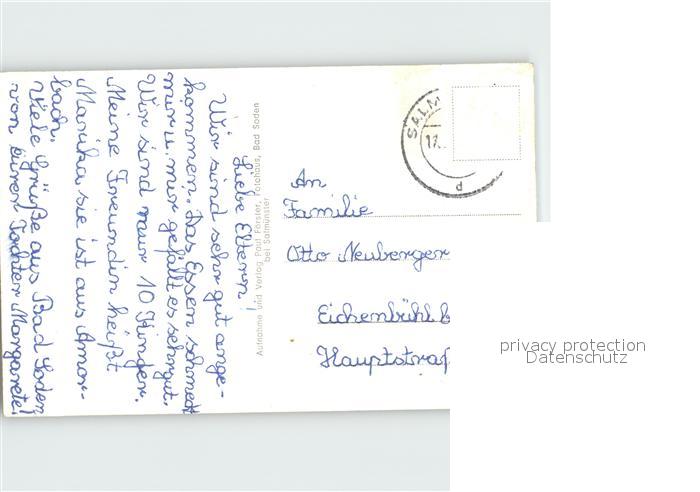 Liebe Eltern!
Wir sind sehr gut ange-
kommen. Das Essen schmeckt
mir u. mir gefällt es sehr gut.
Wir sind nur 10 Kinder.
Meine Freundin heißt
Marika sie ist aus Amor-
bach.
Viele Grüße aus Bad Soden
von eurer Tochter Margarete!
Aufnahme und Verlag Paul Förster, Fotohaus, Bad Soden
bei Salmünster
SALM
17.
d
An
Familie
Otto Neuberger
Eichenbühl b
Hauptstraß
privacy protection
Datenschutz